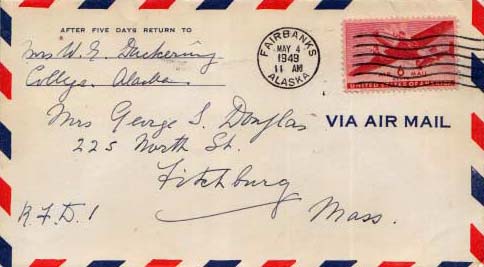 AFTER FIVE DAYS RETURN TO
Mrs W. E. Duckering
College Alaska
FAIRBANKS
MAY 4
1949
11 AM
ALASKA
6¢ AIR MAIL
UNITED STATES OF AMERICA
Mrs George S. Douglas
225 North St.
VIA AIR MAIL
Fitchburg
R.F.D. 1
Mass.